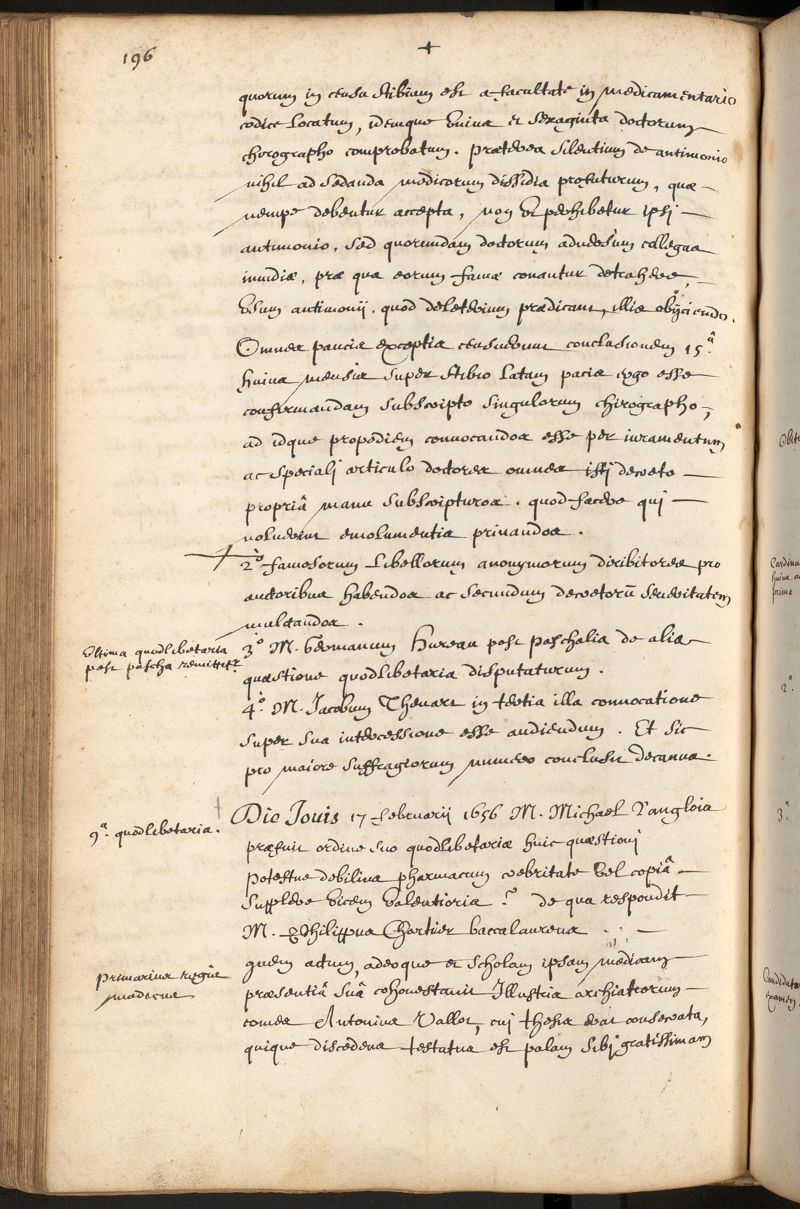 196
+
quorum in censu stibium est a facultate in medicamentario
codice locatum, idemque unius et sexaginta doctorum
chirographo comprobatum. præterea silentium de antimonio
nihil ad sedanda medicorum dissidia profuturum, quæ
nempe debentur accepta, non ut perhibetur ipsi
antimonio, sed quorundam doctorum adversum collegas
invidiæ, præ qua eorum famæ conantur detrahere,
usum antimonij, quod deleterium prædicant, illis obijciendo.
Omnes paucis exceptis censuerunt conclusionem 15ª
huius mensis super stibio latam pacis ergo esse
confirmandam subscripto singulorum chirographo,
ad idque propediem convocandos esse per iuramentum
ac speciali articulo doctores omnes isti decreto
propriâ manu subscripturos. quod facere qui
noluerint emolumentis privandos.
2º famosorum libellorum anonymorum diribitores pro
autoribus habendos ac secundum decretorū severitatem
mulctandos.
ultima quodlibetaria
post pascha remittitur
3º M. Germanum Hureau post paschalia de alia
quæstione quodlibetaria disputaturum.
4º. M. Jacobum Thevart in tertia illa convocatione
super sua intercessione esse audiendum. Et sic
pro maiore suffragiorum numero conclusit decanus.
9ª. quodlibetaria.
Die Jouis 17 februarij 1656 M. Michael Langlois
præfuit ordine suo quodlibetariæ huic quæstioni
potestne debilius pharmacum crebritate vel copiâ
supplere vicem valentioris? de qua respondit
M. Philippus Chartier baccalaureus
primarius regis
medicus
quem actum, adeoque et scholam ipsam medicam
præsentiâ suâ cohonestavit Illustris archiatrorum
comes Antonius Vallot, cui thesis erat consecrata,
quique discedens testatus est palam sibi gratissimam